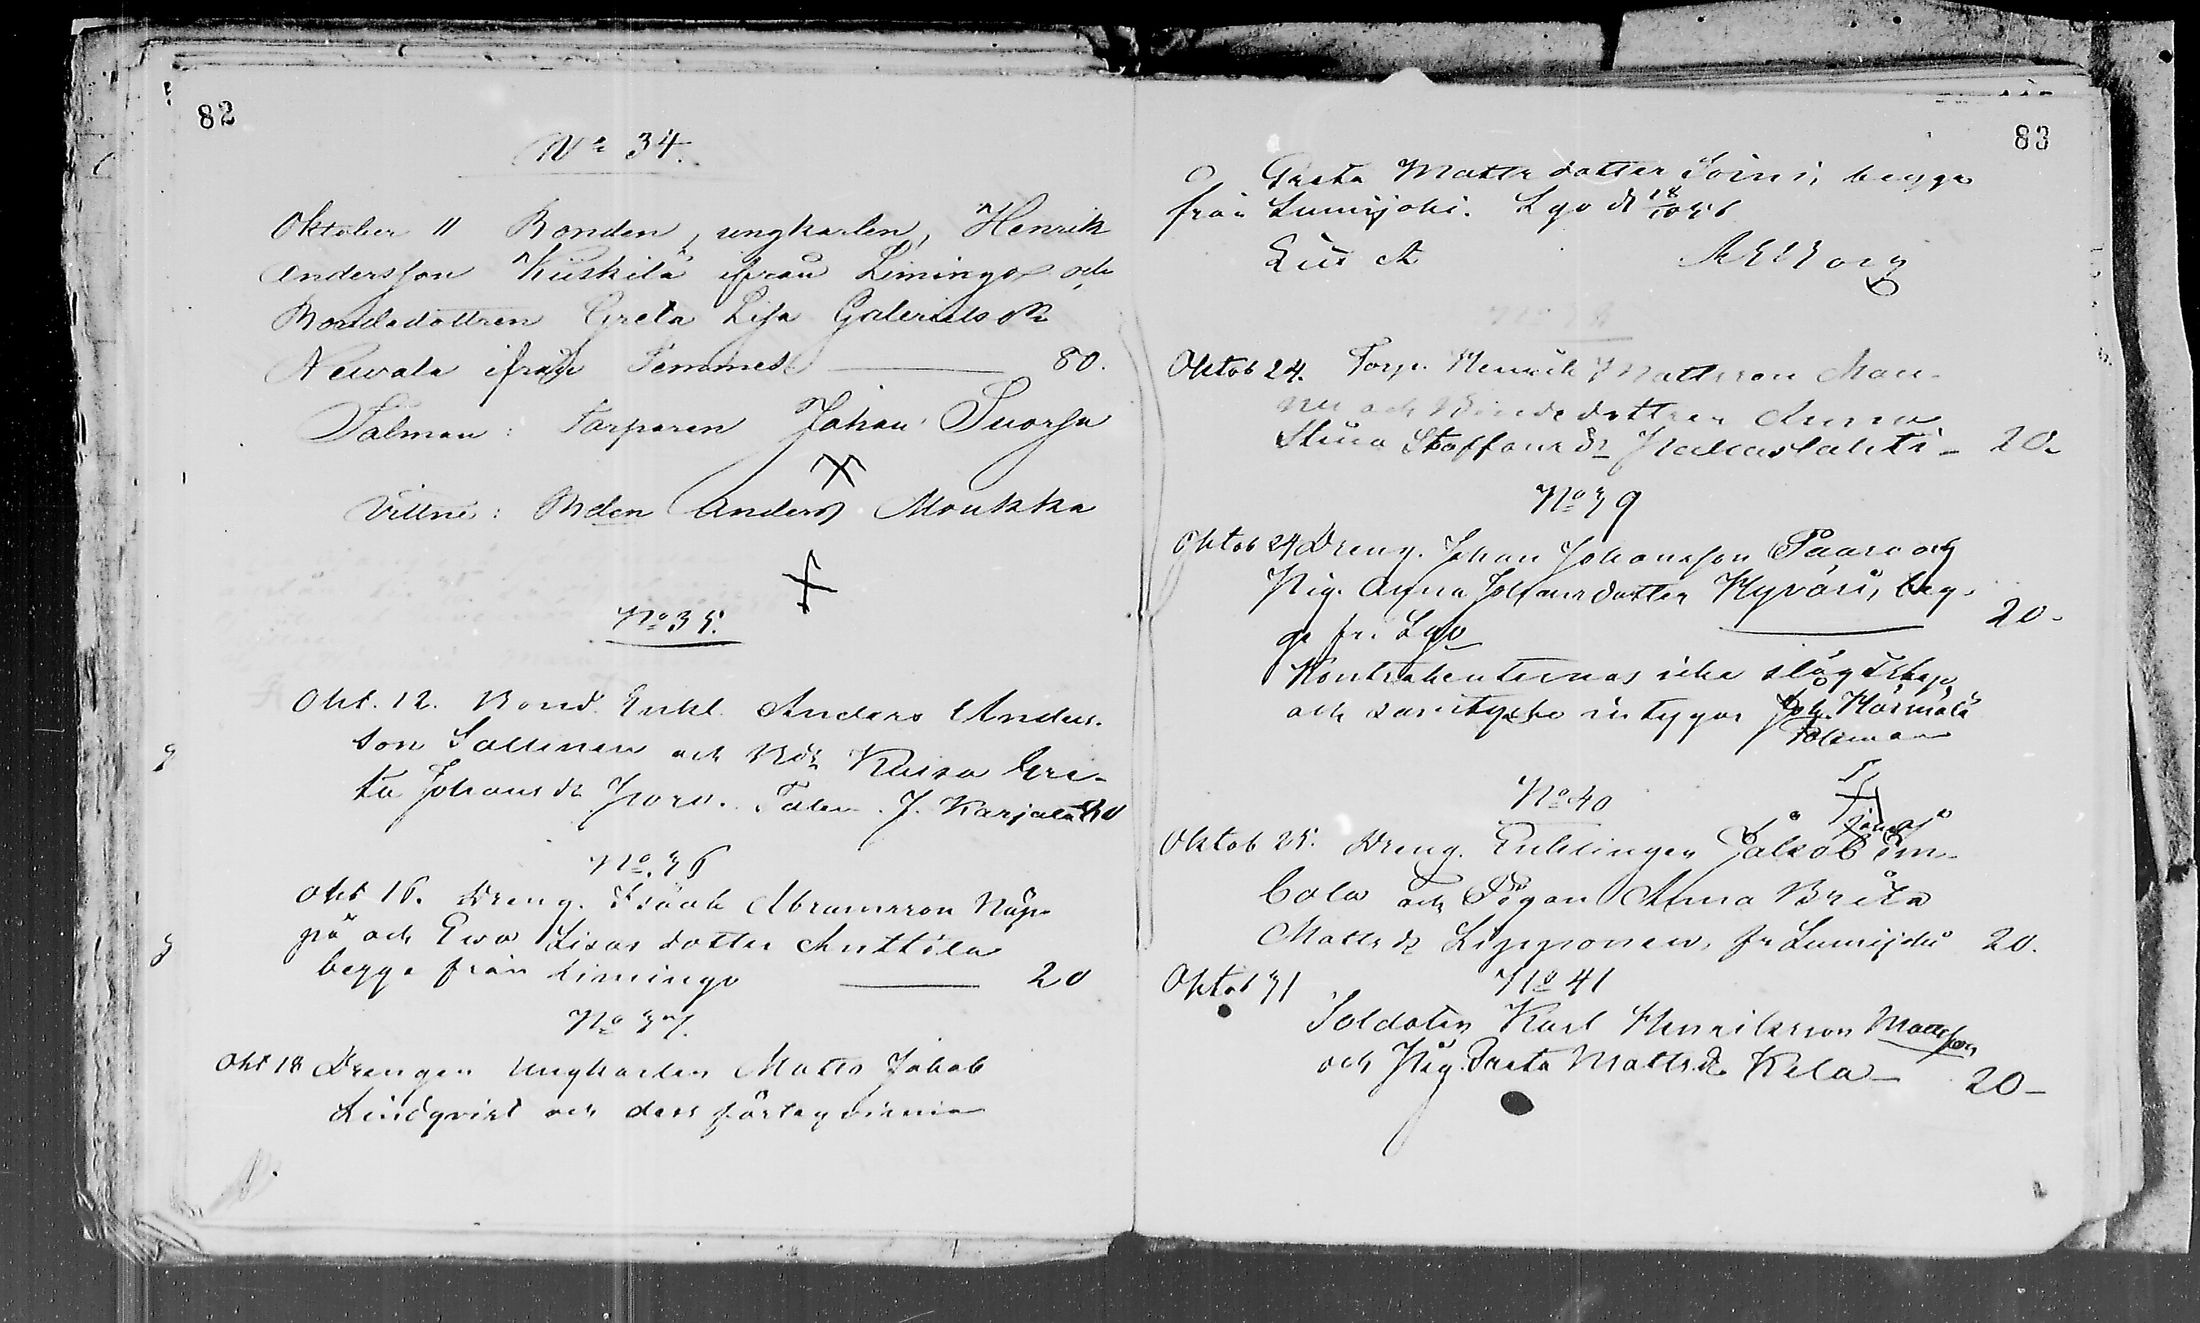 82
No 34.
Oktober 11 Bonden, ungkarlen, Henrik
Andersson Kuskila ifrån Limingo och
Bondedottren Greta Lisa Gabrielsdr
Newala ifrån Temmes 80.
Talman: Torparen Johan Suorsa
X
Vittne: Bden Anders Moukka
X
No 35.
Okt. 12. Bond. Enkl. Anders Anders-
son Sallinen och Bdr Kaisa Gre-
ta Johansdr Talm. J. Karjala 20
No. 36
Okt 16. Dreng. Isaak Abramsson Näp-
pä och Ewa Lisas dotter Anttila
begge från Limingo 20
No 37.
Okt 18 Drengen Ungkarlen Matts Jakob
Lindqvist och dess
83
Greta Matts dotter Soini, begge
från Lumijoki. Lgo d 18/10
No 38
Oktob 24. Torp. Henrik Mattsson Man-
och Bondedottren Anna
Stina Staffansdr 20.
No 39
Oktob 24 Dreng. Johan Johansson Paaso och
Pig. Anna Johansdotter Hyväri, beg-
ge fr. Lgo 20.
Kontrahenternas icke slägtskap
och samtycke intygar Joh. Härmälä
Talman
No 40
Oktob 25. Dreng. Enklingen Jakob Im-
bola och Pigan Anna Brita
Mattsdr Lipponen, fr Lumijoki 20.
Oktob 31 No 41
Soldaten Karl Henriksson Mattsson
och Pig. Greta Mattsdr Kela 20-